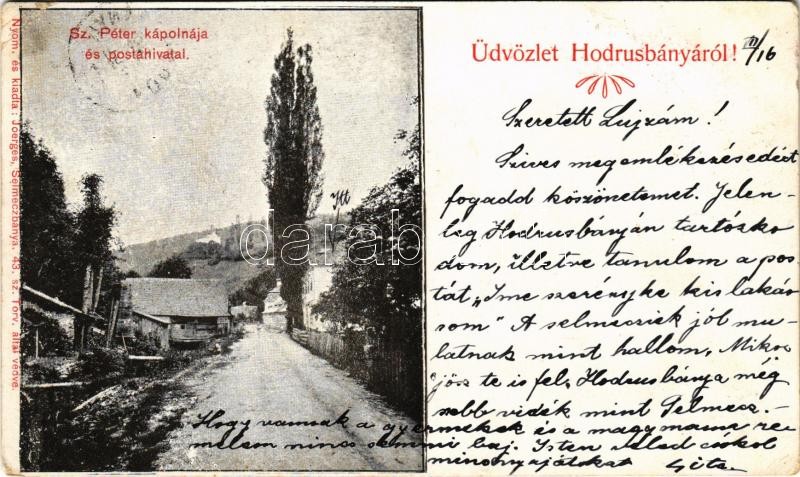 Sz. Péter kápolnája
és postahivatal.
Nyom. és kiadta: Joerges, Selmeczbánya. 43. sz. Törv. által védve.
Üdvözlet Hodrusbányáról!
II/16
Szeretett Lujzám!
Szives megemlékezésedért
fogadd köszönetemet. Jelen-
leg Hodrusbányán tartózko
dom, illetve tanulom a pos
tát, "Ime szerényke kis lakás
som" A selmecziek jól mu-
latnak mint hallom. Mikor
jösz te is fel. Hodrusbánya még
szebb vidék mint Selmecz.-
Itt
Hogy vannak a gyermekek és a nagymama re
mélem nincs semmi baj. Isten veled csókol
mindnyájatokat Gita.
darab